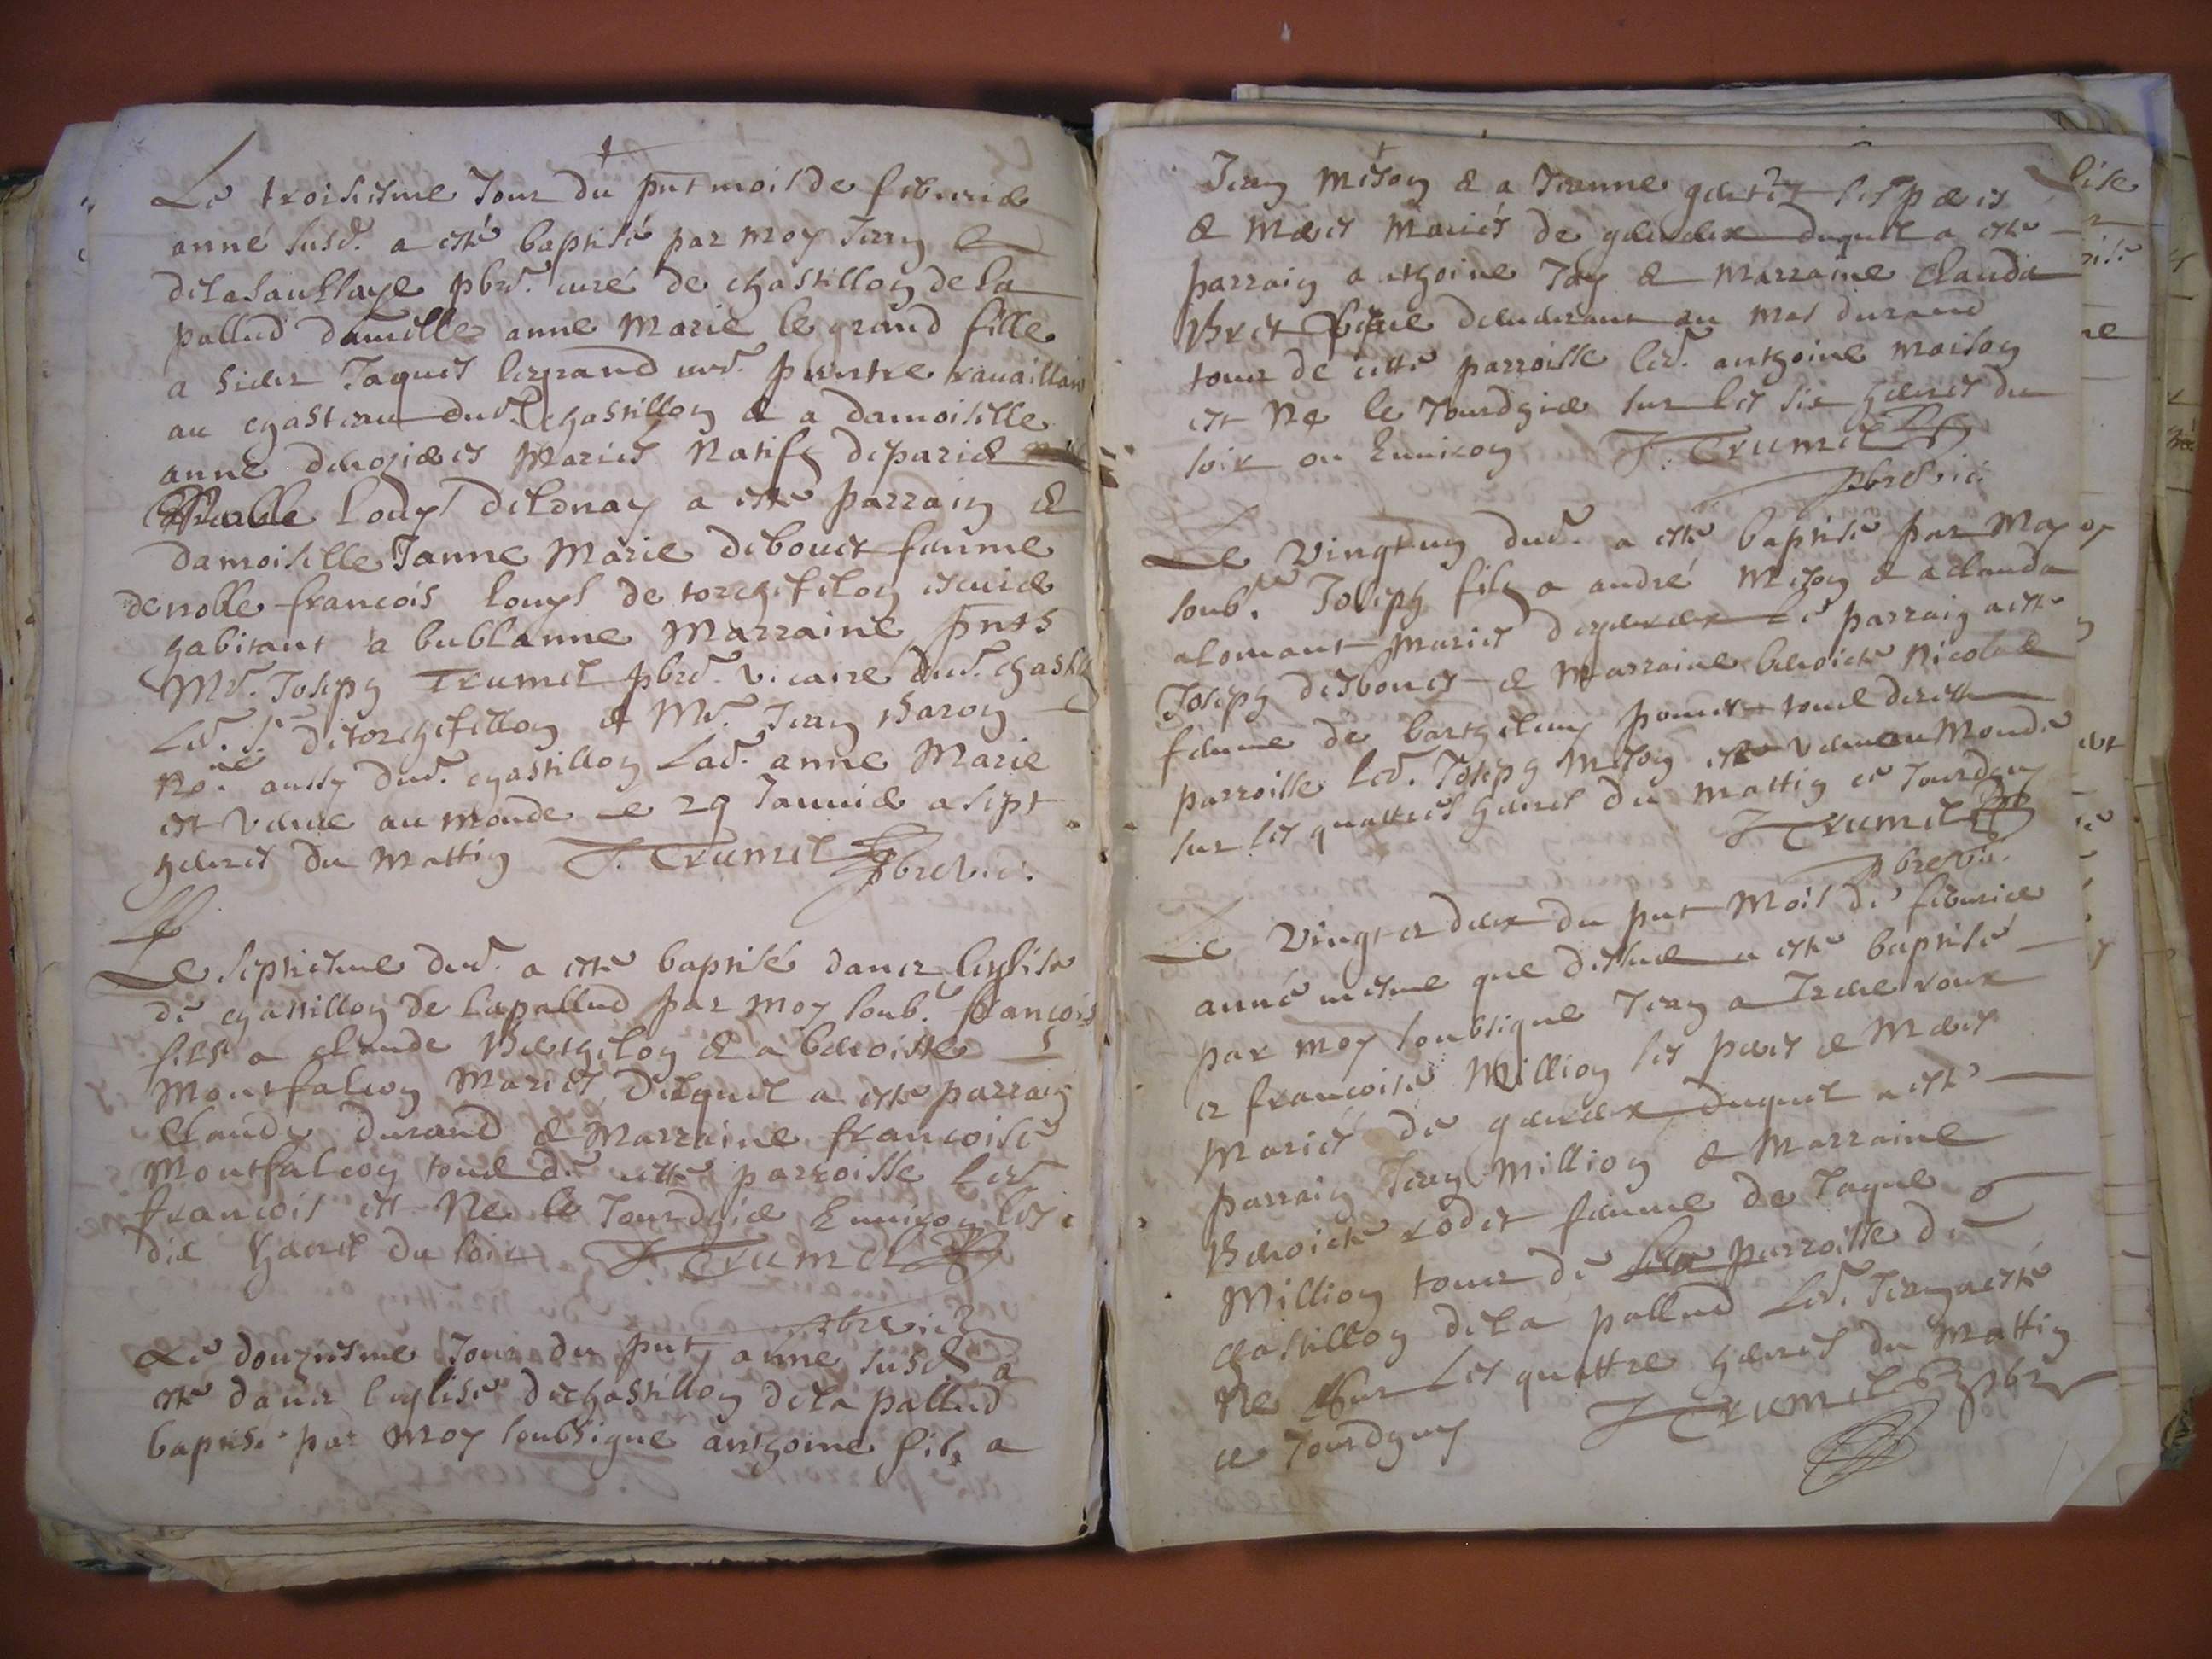 Le troisiesme Jour du pnt mois de feburier
anné susd. a esté baptisé par moy Jean
delasaullaye pbre. curé de chastillon de la
pallud damlle anne Marie le grand fille
a sieur Jaques legrand peintre trauaillant
au chasteau dud. chastillon & a damoiselle
anne mariés Natifs de paris
Noble Louys delonay a esté parrain &
damoiselle Janne Marie debouet femme
de noble francois louys de escuier
habitant a bublanne Marraine pnts
Mre. Joseph Trumel pbre. vicaire dud. chastillon
Led. sr. & Mre. Jean Baron
Nore. aussy dud. chastillon Lad. anne Marie
est venue au monde le 29 Januier a sept
heures du mattin J. Trumel
pbre vic.
Le septiesme dud. a esté baptisé dans leglise
de chastillon de lapallud par moy soub. francois
fils a claude Berthelon & a benoiste
Montfalcon Mariés Duquel a esté parrain
Claude durand & Marraine francoise
Montfalcon tous de cette parroisse Led.
francois est Ne le Jourdhier Enuiron les
dix heures du soir J. Trumel
pbre vic
Le douziesme Jour du pnt anne susd. a
esté dans leglise de chastillon dela pallud
baptisé par moy soubsigne anthoine fils a
Jean Meson & a Jeanne ses peres
& meres Mariés de duquel a esté
parrain anthoine Jay & Marraine Clauda
Bret demeurant au Mas durand
tous de cette parroisse led. anthoine Maison
est Ne le Jourdhier sur les six heures du
soir ou Enuiron J. Trumel
pbre vic
Le Vingtun dud. a esté baptisé par Moy
soub. Joseph fils a andré Meson & a clauda
alomant Mariés Le parrain a esté
Joseph desbouet & Marraine benoiste Nicolas
femme de barthelemy tous de cette
parroisse led. Joseph Meson est venu au Monde
sur les quattres heures du mattin ce Jourdhuy
J. Trumel
pbre vic.
Le Vingt et deux du pnt Mois de feburier
anné mesme que dessus a esté baptisé
par moy soubsigne Jean a roux
et francoise Million ses peres & Meres
Mariés de duquel a esté
parrain Jean Million & Marraine
Benoiste rodet femme de Jaque
Million tous de parroisse de
chastillon dela pallud Led. Jean a esté
Ne sur les quattre heures du Mattin
ce Jourdhuy J. Trumel pbre